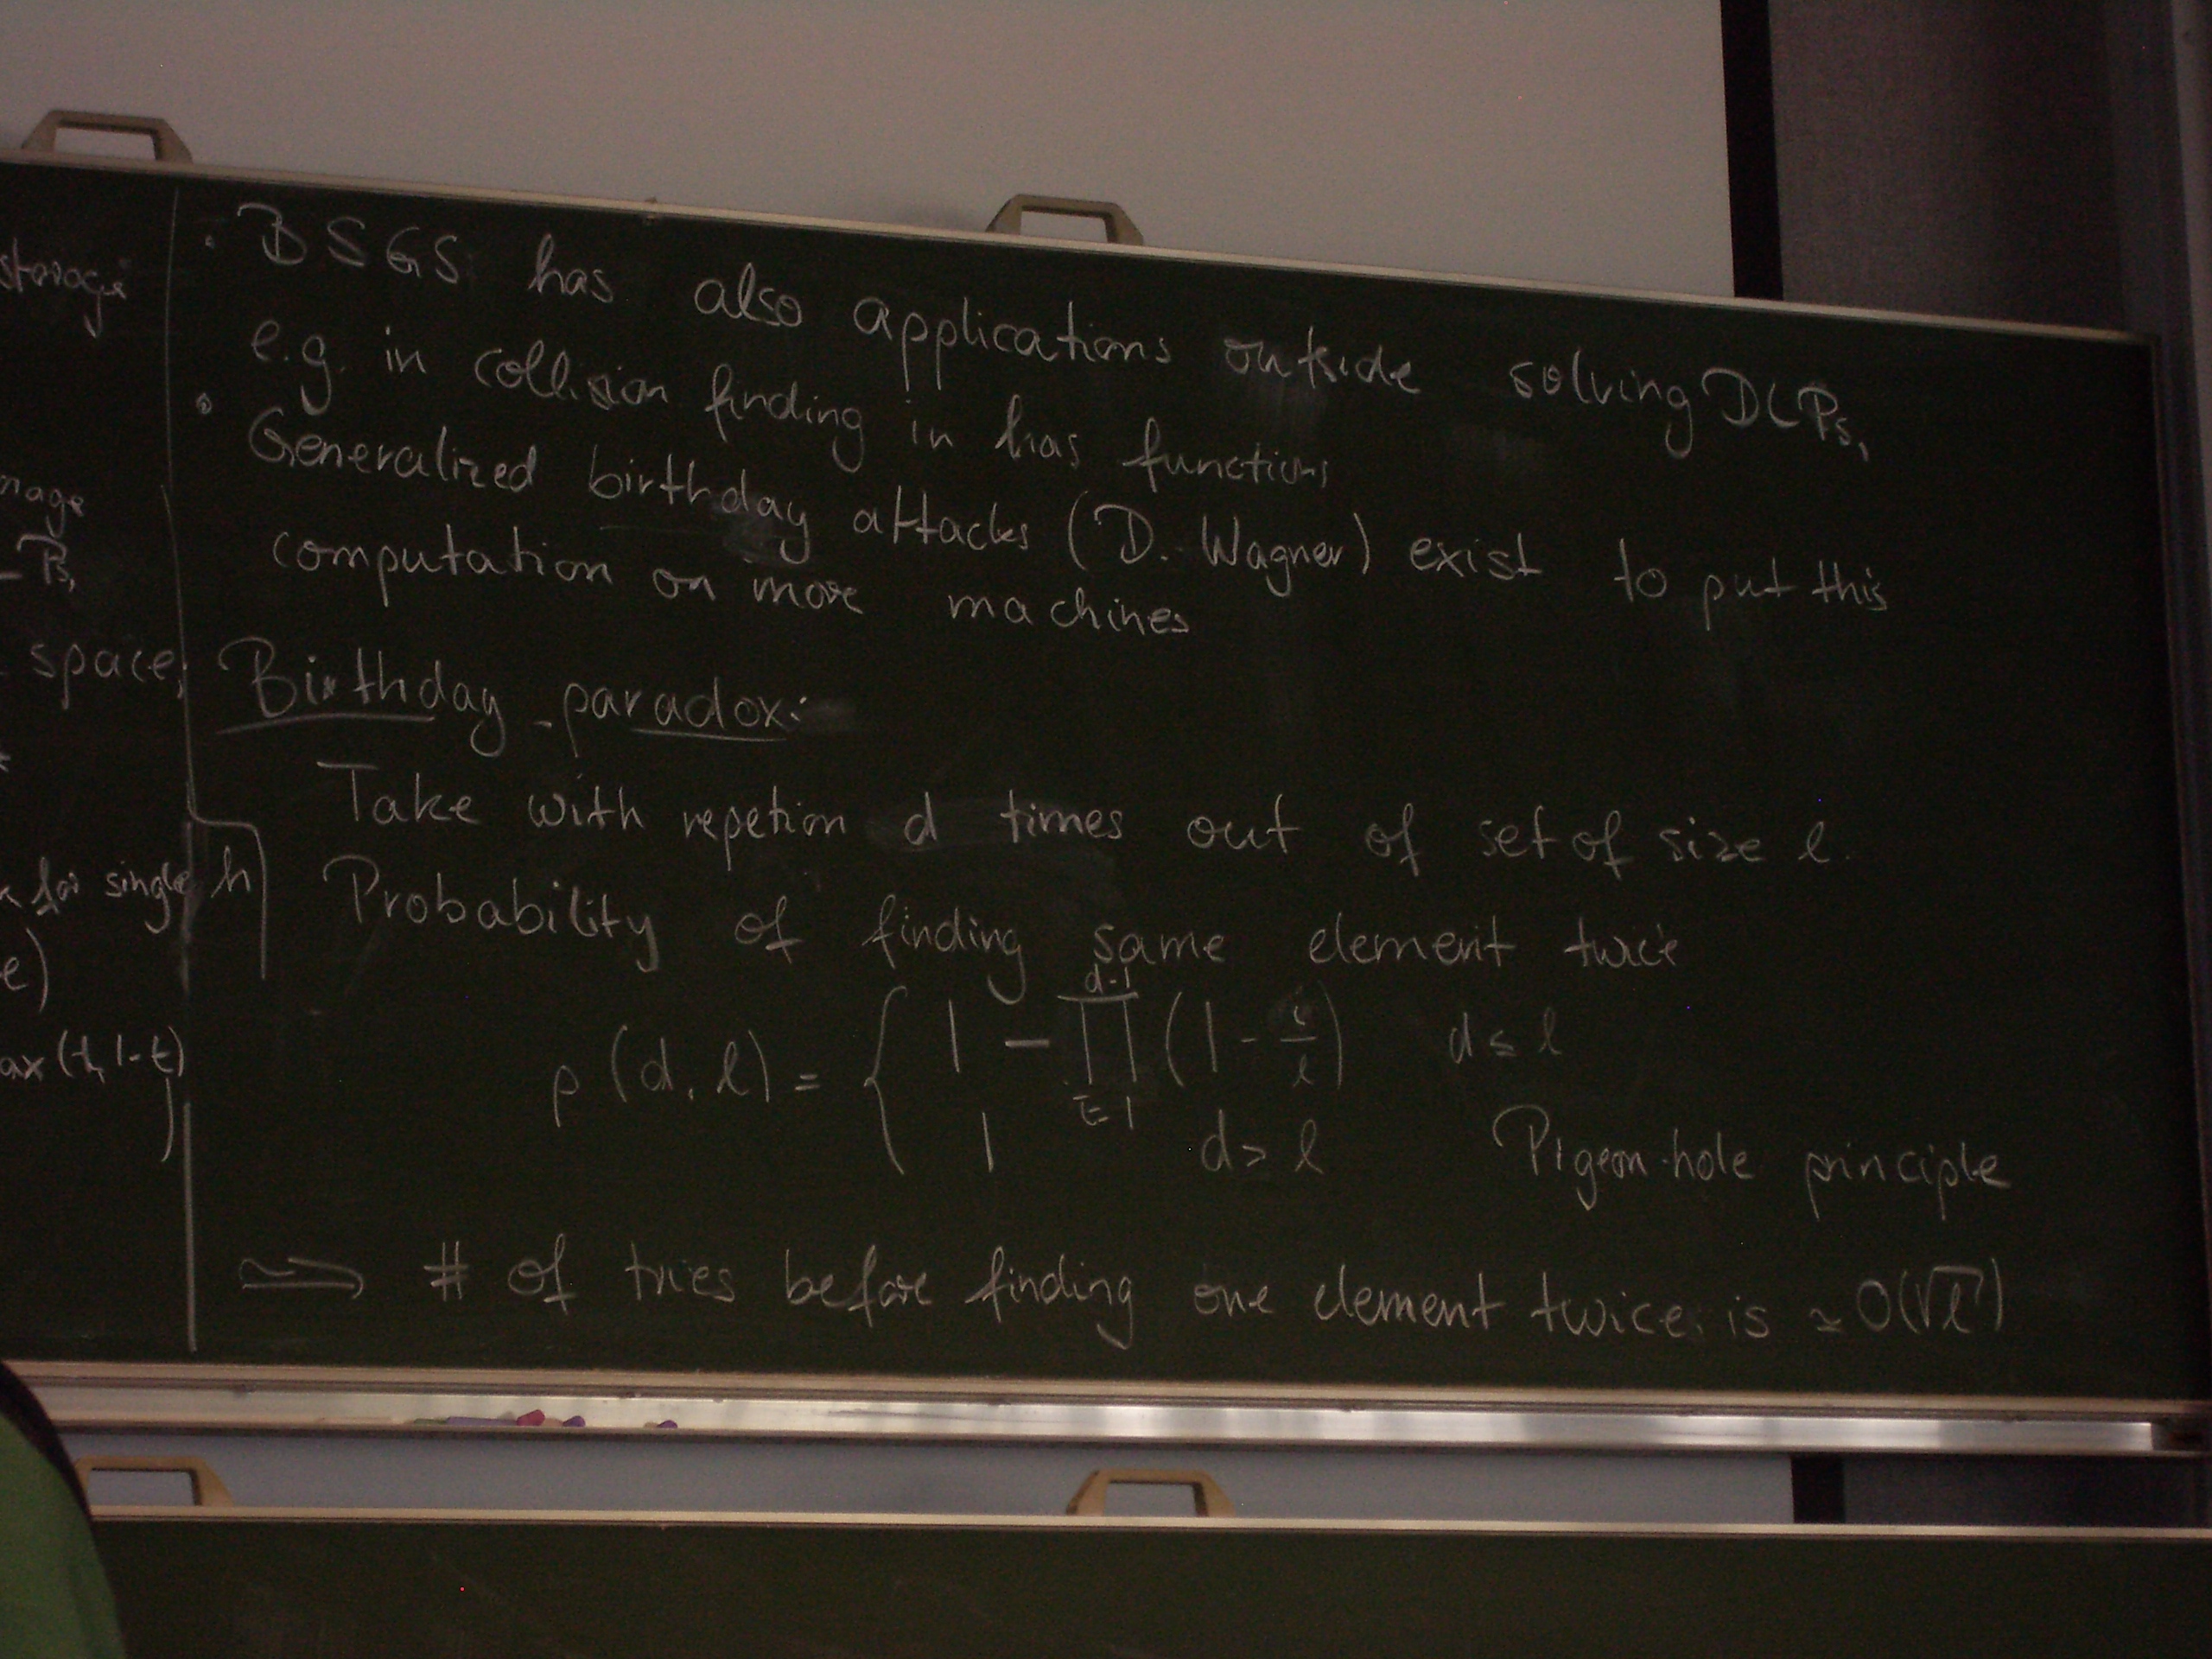 storage
mage
space,
for single h
e)
ax(t, 1-t)
• BSGS has also applications outside solving DLPs,
e.g. in collision finding in has functions
• Generalized birthday attacks (D. Wagner) exist to put this
computation on more machines
Birthday-paradox:
Take with repetion d times out of set of size l.
Probability of finding same element twice
p(d, l) = { 1 - ∏_{i=1}^{d-1} (1 - i/l) d ≤ l
1 d > l Pigeon-hole principle
⇒ # of tries before finding one element twice is ≈ O(√l)